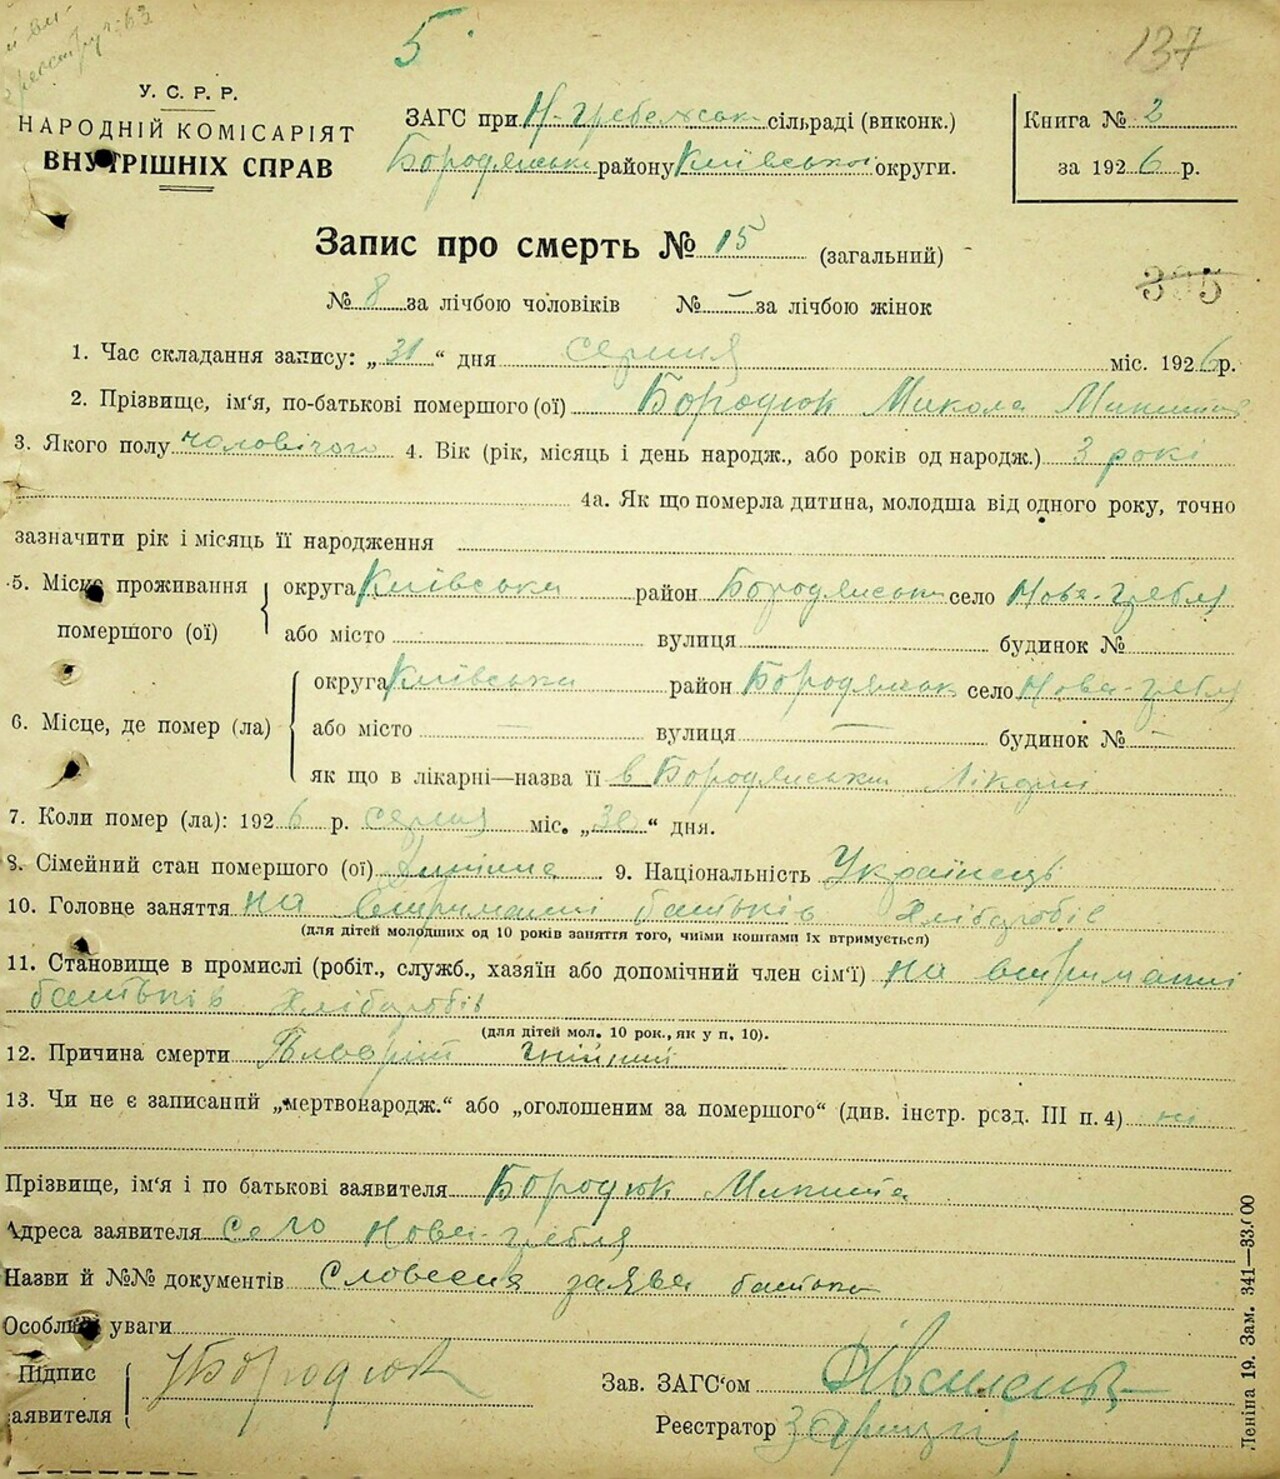 5
137
У. С. Р. Р.
НАРОДНІЙ КОМІСАРІЯТ
ВНУТРІШНІХ СПРАВ
ЗАГС при Н-Гребельськ сільраді (виконк.)
Бородянськ району Київської округи.
Книга № 2
за 1926 р.
Запис про смерть № 15 (загальний)
№ 8 за лічбою чоловіків № – за лічбою жінок
395
1. Час складання запису: „31“ дня серпня міс. 1926 р.
2. Прізвище, ім'я, по-батькові помершого (ої) Бородюк Микола Микит
3. Якого полу чоловічого 4. Вік (рік, місяць і день народж., або років од народж.) 3 рокі
4а. Як що померла дитина, молодша від одного року, точно
зазначити рік і місяць її народження
5. Місце проживання помершого (ої) округа Київська район Бородянськ село Нова-Гребля
або місто вулиця будинок №
6. Місце, де помер (ла) округа Київська район Бородянськ село Нова-Гребля
або місто — вулиця — будинок № –
як що в лікарні—назва її в Бородянськи лікарні
7. Коли помер (ла): 1926 р. серпня міс. „30“ дня.
8. Сімейний стан помершого (ої) 9. Національність Українець
10. Головне заняття на втриманні батьків хліборобів
(для дітей молодших од 10 років заняття того, чиїми коштами їх втримується)
11. Становище в промислі (робіт., служб., хазяїн або допомічний член сім'ї) на втриманні
батьків хліборобів
(для дітей мол. 10 рок., як у п. 10).
12. Причина смерти Плеврит гнійний
13. Чи не є записаний „мертвонародж.“ або „оголошеним за помершого“ (див. інстр. розд. III п. 4) ні
Прізвище, ім'я і по батькові заявителя Бородюк Микита
Адреса заявителя село Нова-Гребля
Назви й №№ документів Словесна заява батька
Особливі уваги
Підпис заявителя Бородюк
Зав. ЗАГС'ом
Реєстратор
Леніна 19. Зам. 341—33.000